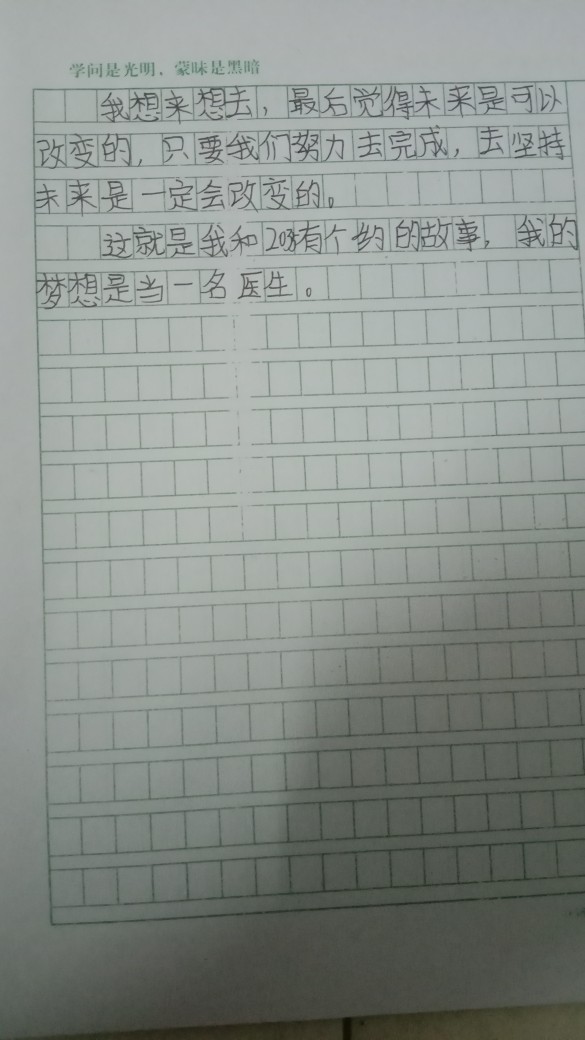 学问是光明，蒙昧是黑暗
我想来想去，最后觉得未来是可以
改变的，只要我们努力去完成，去坚持
未来是一定会改变的。
这就是我和有个约的故事，我的
梦想是当一名医生。